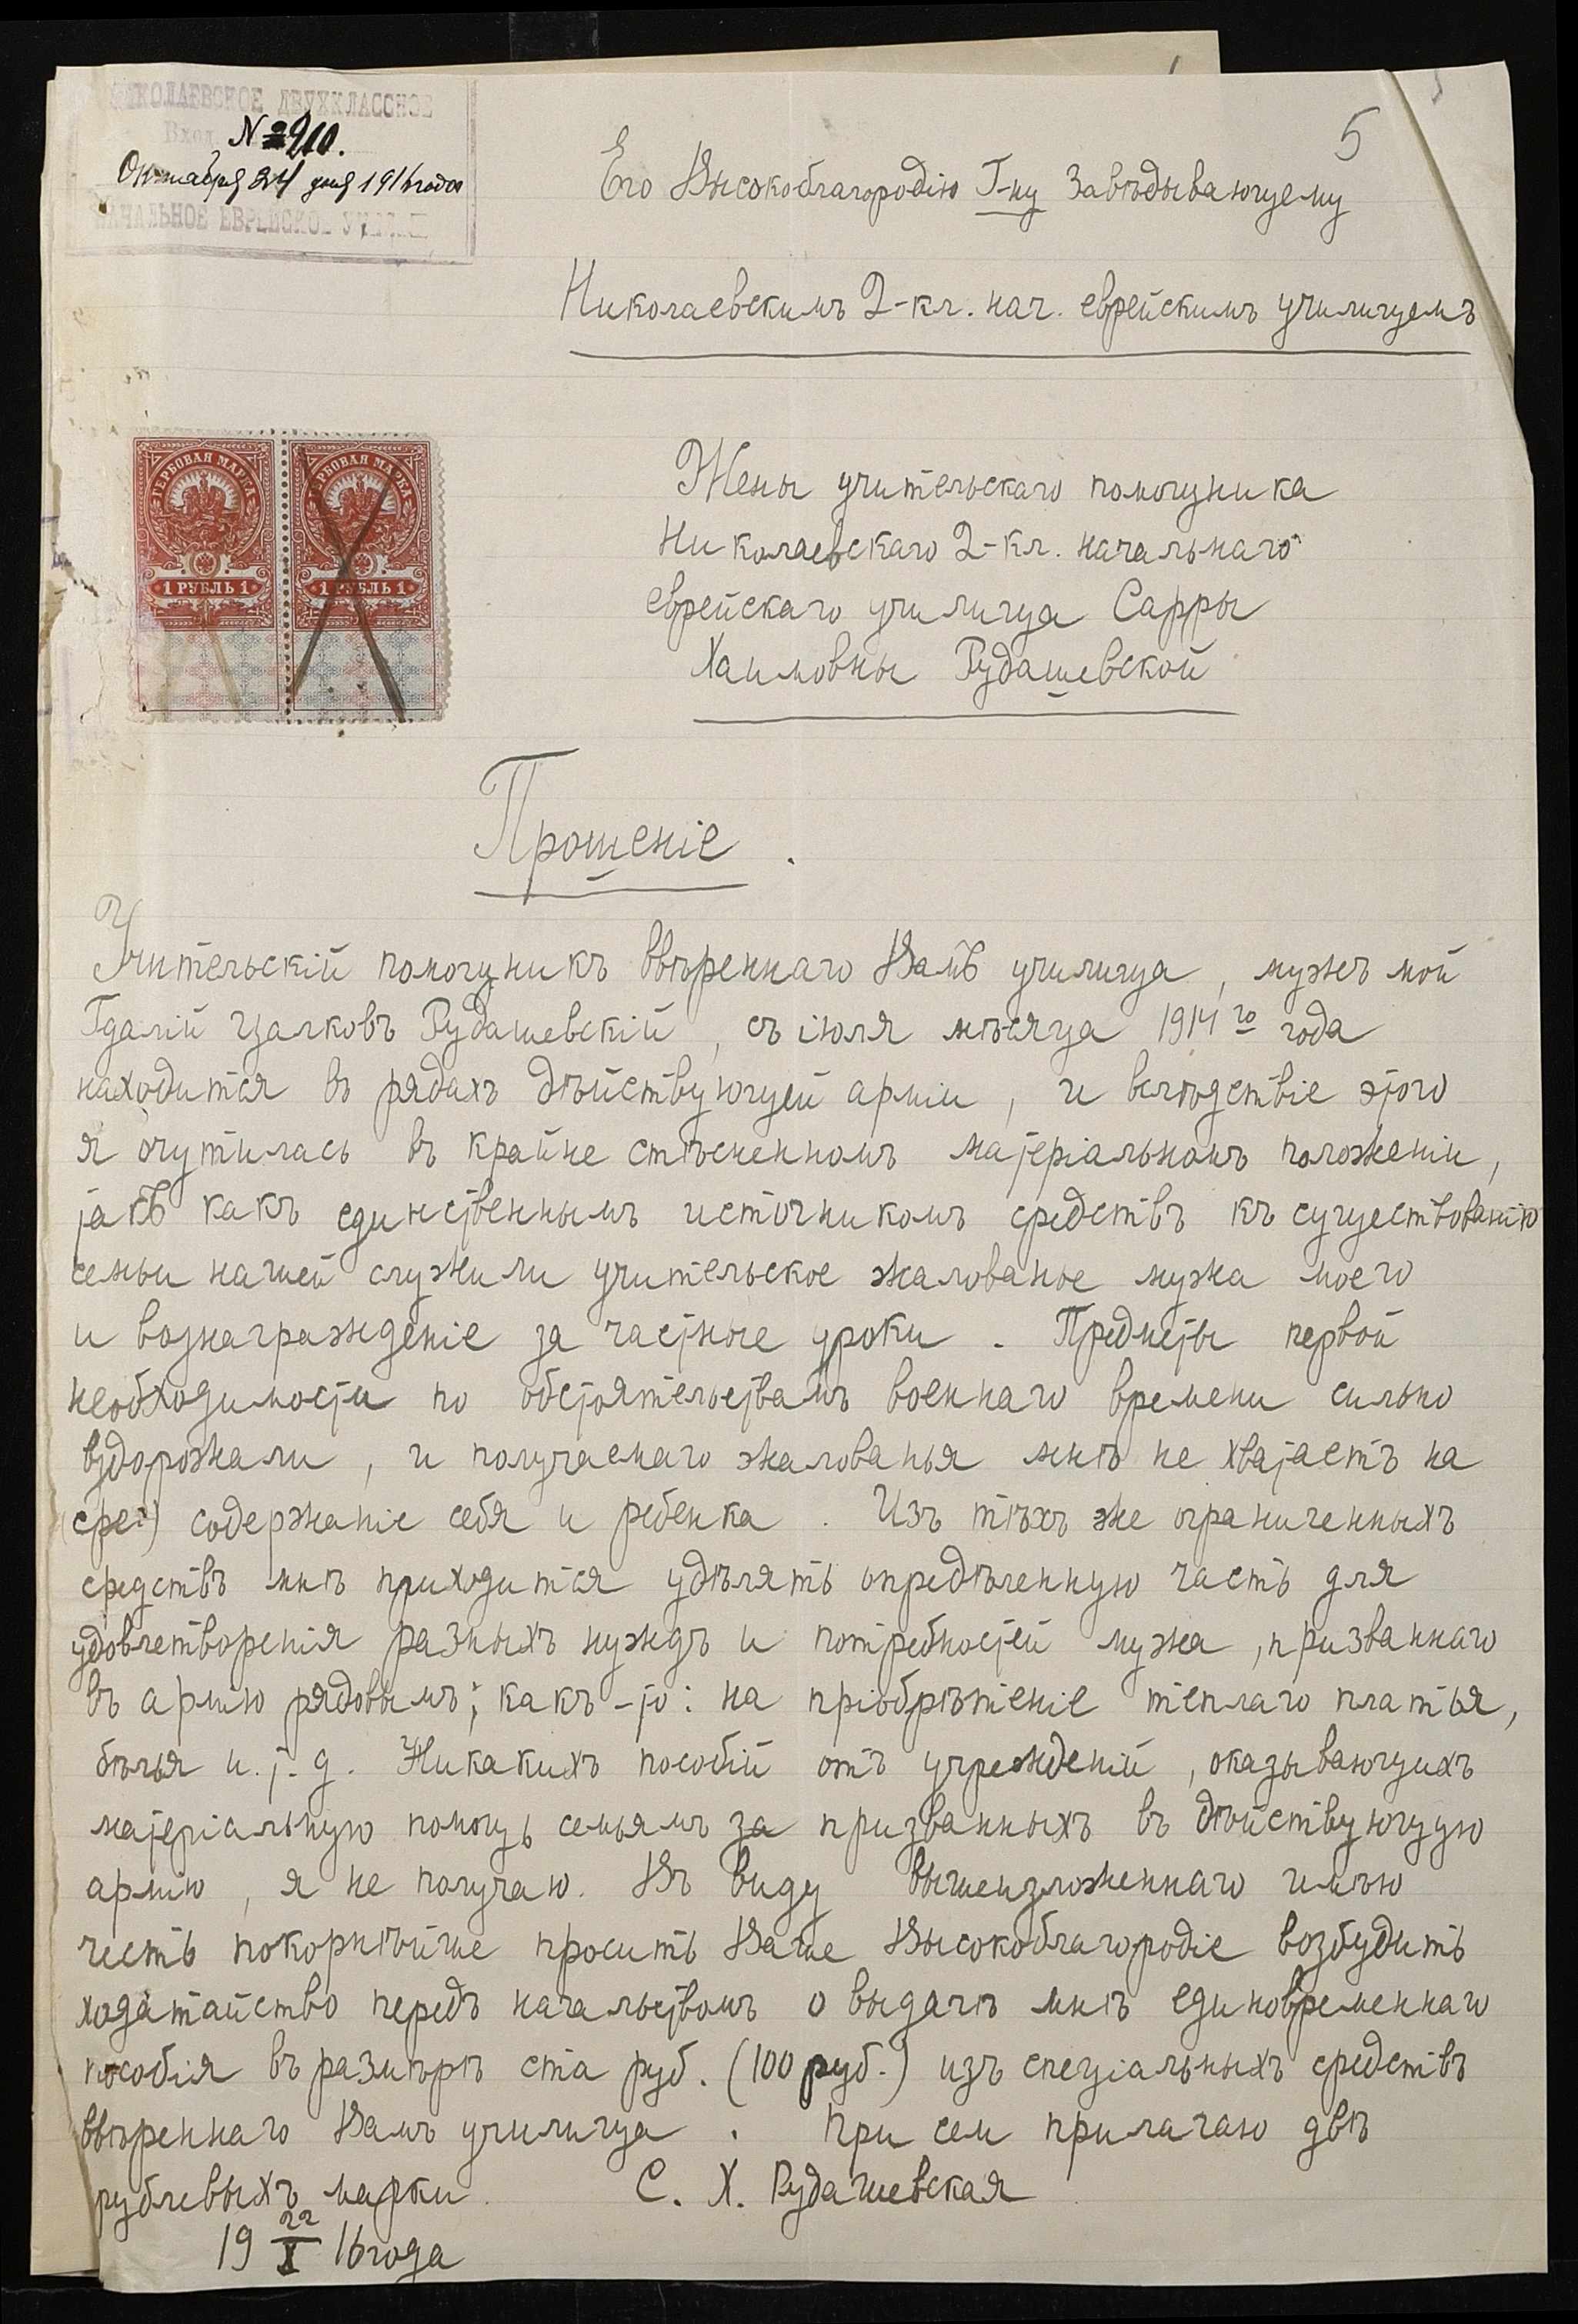 НИКОЛАЕВСКОЕ ДВУХКЛАССНОЕ
Вход. № 210.
Октября 24 дня 1916 года
НАЧАЛЬНОЕ ЕВРЕЙСКОЕ
5
Его Высокоблагородію Г-ну Завѣдывающему
Николаевскимъ 2-кл. нач. еврейскимъ училищемъ
ГЕРБОВАЯ МАРКА
1 РУБЛЬ 1
ГЕРБОВАЯ МАРКА
1 РУБЛЬ 1
Жены учительскаго помощника
Николаевскаго 2-кл. начальнаго
еврейскаго училища Сарры
Хаимовны Рудашевской
Прошеніе.
Учительскій помощникъ ввѣреннаго Вамъ училища, мужъ мой
Гдалій Цалковъ Рудашевскій, съ іюля мѣсяца 1914 го года
находится въ рядахъ дѣйствующей арміи, и вслѣдствіе этого
я очутилась въ крайне стѣсненномъ матеріальномъ положеніи,
такъ какъ единственнымъ источникомъ средствъ къ существованію
семьи нашей служили учительское жалованье мужа моего
и вознагражденіе за частные уроки. Предметы первой
необходимости по обстоятельствамъ военнаго времени сильно
вздорожали, и получаемаго жалованья мнѣ не хватаетъ на
содержаніе себя и ребенка. Изъ тѣхъ же ограниченныхъ
средствъ мнѣ приходится удѣлять опредѣленную часть для
удовлетворенія разныхъ нуждъ и потребностей мужа, призваннаго
въ армію рядовымъ; какъ-то: на пріобрѣтеніе теплаго платья,
бѣлья и.т.д. Никакихъ пособій отъ учрежденій, оказывающихъ
матеріальную помощь семьямъ за призванныхъ въ дѣйствующую
армію, я не получаю. Въ виду вышеизложеннаго имѣю
честь покорнѣйше просить Ваше Высокоблагородіе возбудить
ходатайство передъ начальствомъ о выдачѣ мнѣ единовременнаго
пособія въ размѣрѣ ста руб. (100 руб.) изъ спеціальныхъ средствъ
ввѣреннаго Вамъ училища. При сем прилагаю двѣ
рублевыхъ марки. С. Х. Рудашевская
19 22/X 16 года